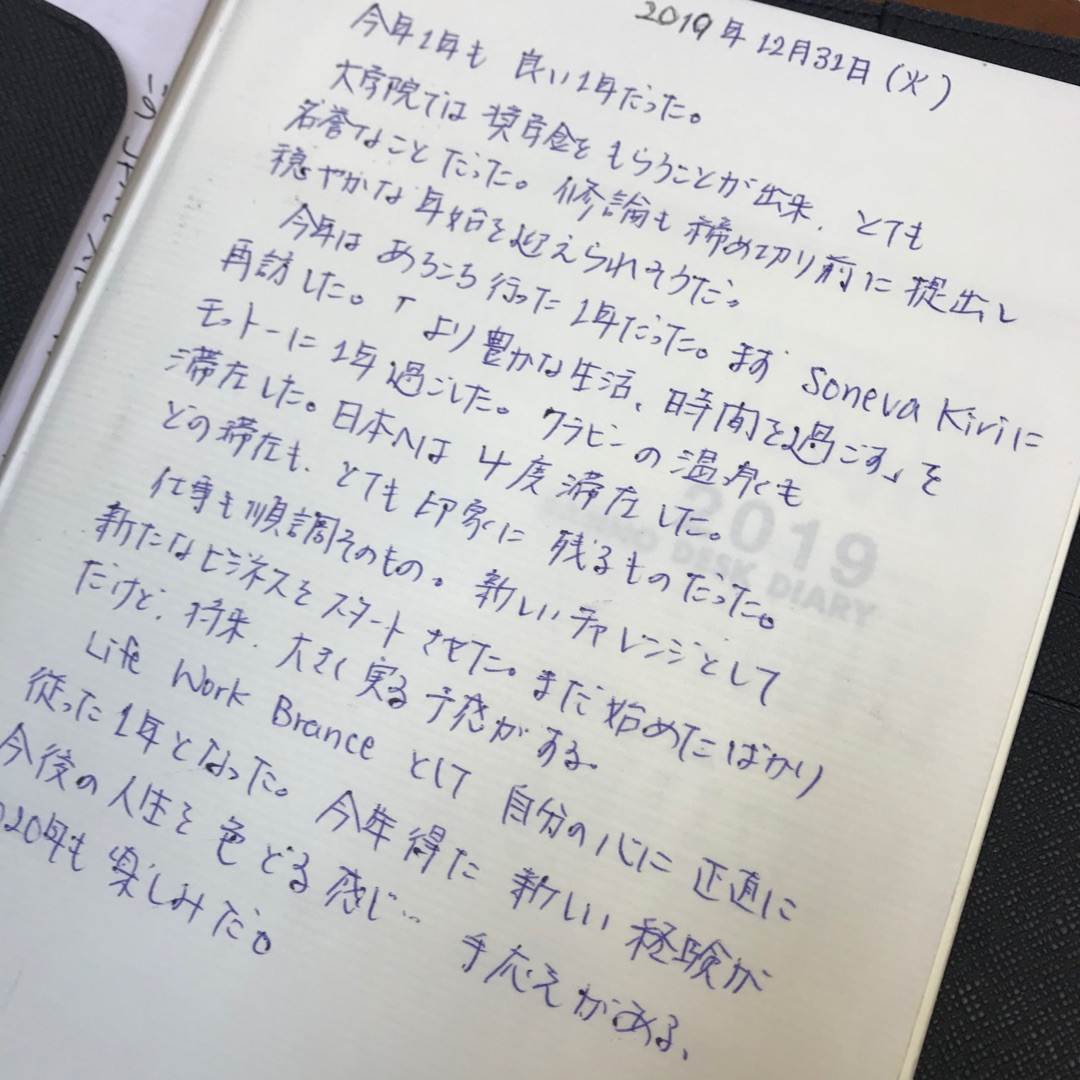 2019年12月31日(火)
今年1年も 良い1年だった。
大学院では 奨学金を もらうことが出来、とても
名誉なことだった。修論も 締め切り前に 提出し
穏やかな年始を迎えられそうだ。
今年は あちこち 行った 1年だった。まず Soneva Kiriに
再訪した。「より豊かな生活、時間を過ごす」を
モットーに 1年 過ごした。クラビーの 温泉にも
滞在した。日本へは 4度 滞在した。
どの滞在も、とても 印象に 残るものだった。
仕事も順調そのもの。新しいチャレンジとして
新たなビジネスを スタート させた。まだ始めたばかり
だけど、将来、大きく実る 予感がする。
Life Work Brance として 自分の心に 正直に
従った1年となった。今年得た 新しい 経験が
今後の 人生を 色どる 感じ… 手応えがある、
020年も 楽しみだ。
2019
DESK DIARY